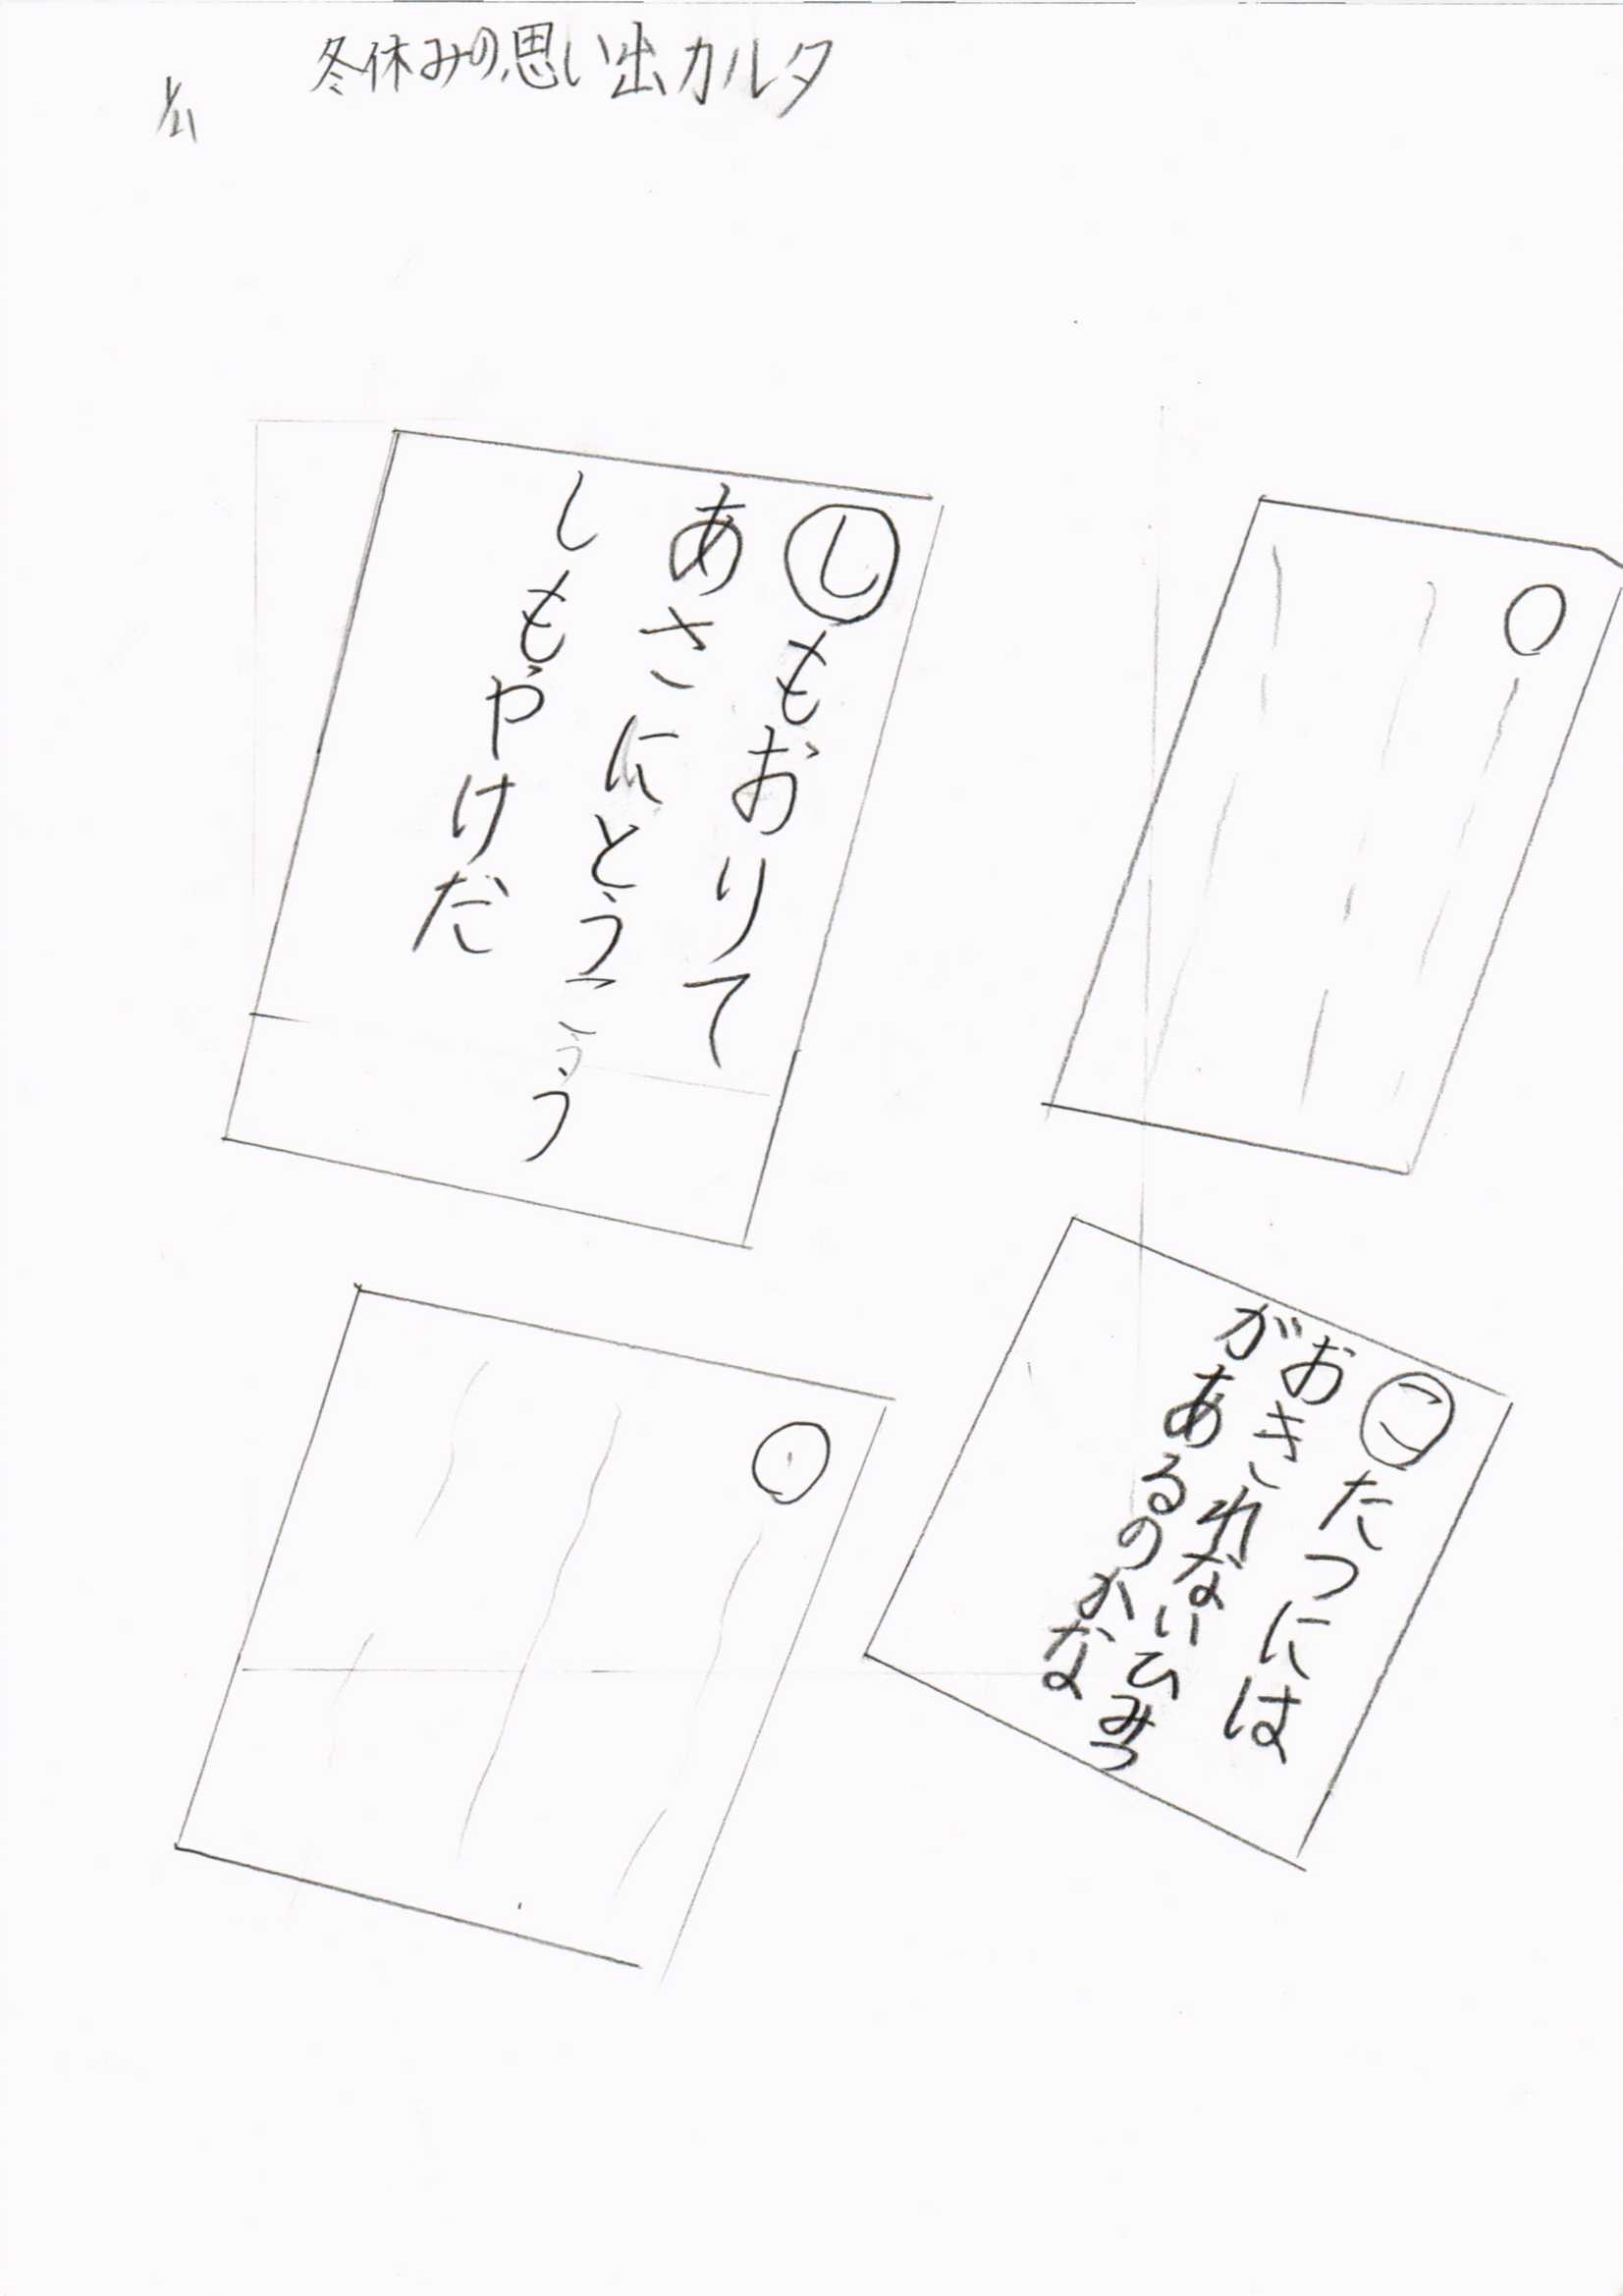 冬休みの思い出カルタ
1/21
しもおりて
あさにとうこう
しもやけだ
こたつには
おきれないひみつ
があるのかな